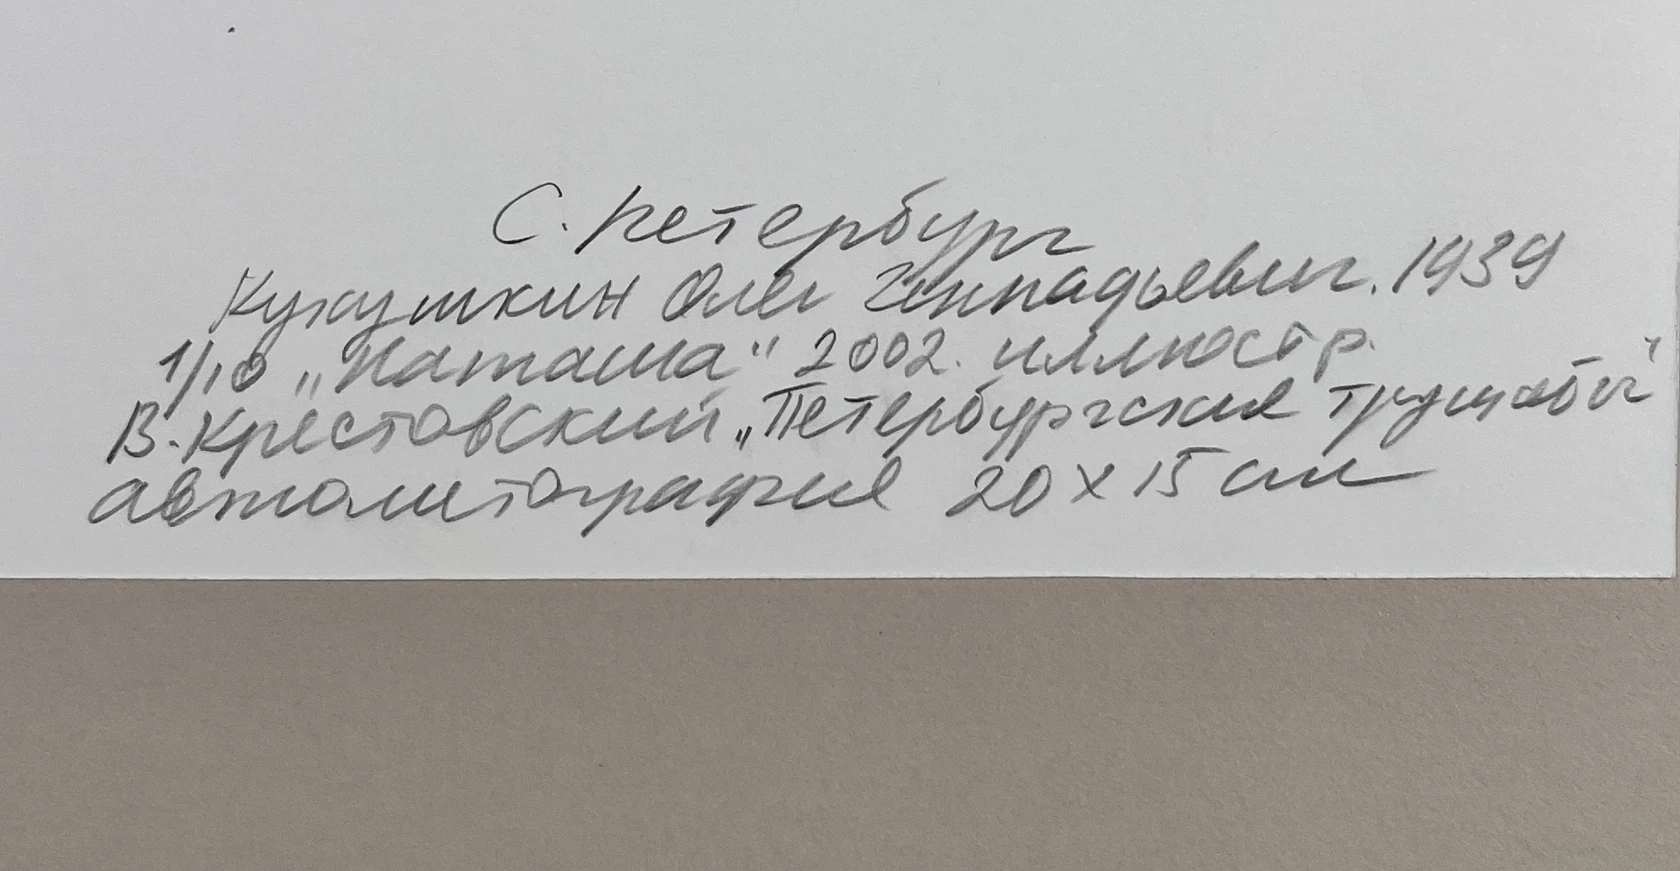 С. Петербург
Кукушкин Олег Геннадьевич. 1939
1/10 „Наташа" 2002. иллюстр.
В. Крестовский „Петербургские трущобы"
автолитография 20 х 15 см